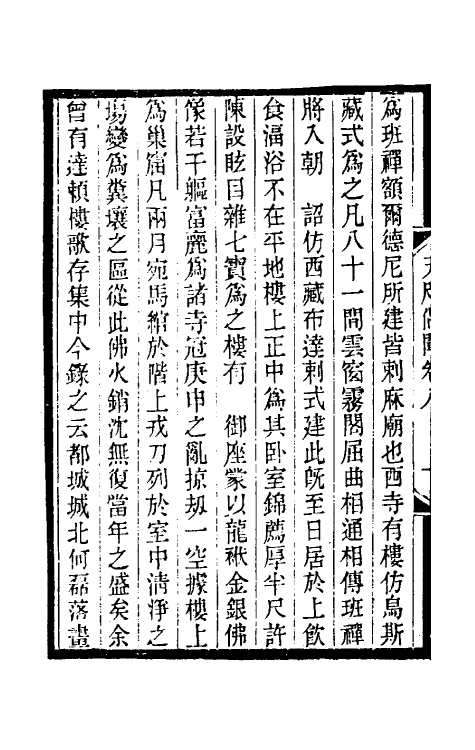 爲班禪額爾德尼所建皆剌麻廟也西寺有樓仿烏斯
藏式爲之凡八十一間雲窗霧閣屈曲相通相傳班禪
將入朝　詔仿西藏布達剌式建此旣至日居於上飲
食湢浴不在平地樓上正中爲其卧室錦薦厚半尺許
陳設眩目雜七寶爲之樓有　御座蒙以龍袱金銀佛
像若干軀富麗爲諸寺冠庚申之亂掠刼一空據樓上
爲巢窟凡兩月宛馬綰於階上戎刀列於室中清淨之
場變爲糞壤之區從此佛火銷沈無復當年之盛矣余
曾有達賴樓歌存集中今錄之云都城城北何磊落畫